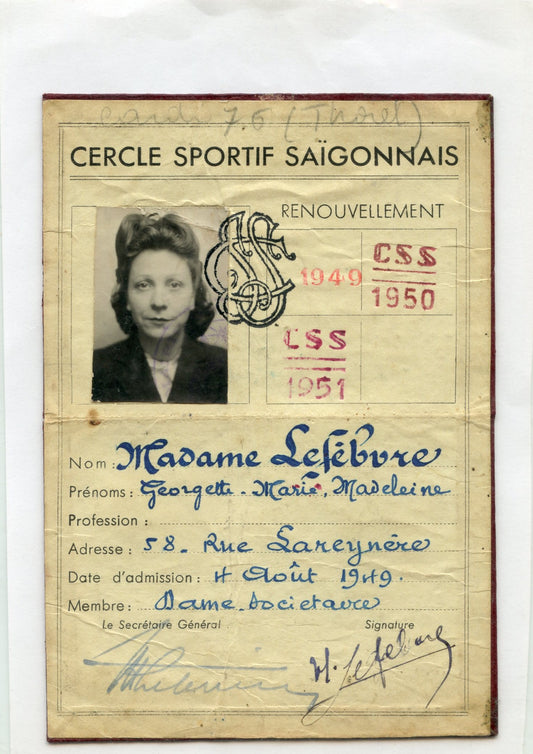 7.6 (Thorel)
CERCLE SPORTIF SAÏGONNAIS
RENOUVELLEMENT
1949
CSS
1950
CSS
1951
Nom : Madame Lefébvre
Prénoms : Georgette - Marie, Madeleine
Profession :
Adresse : 58. Rue Lareynère
Date d'admission : 4 Août 1949.
Membre : Dame Sociétaire
Le Secrétaire Général
Signature
Lefebvre